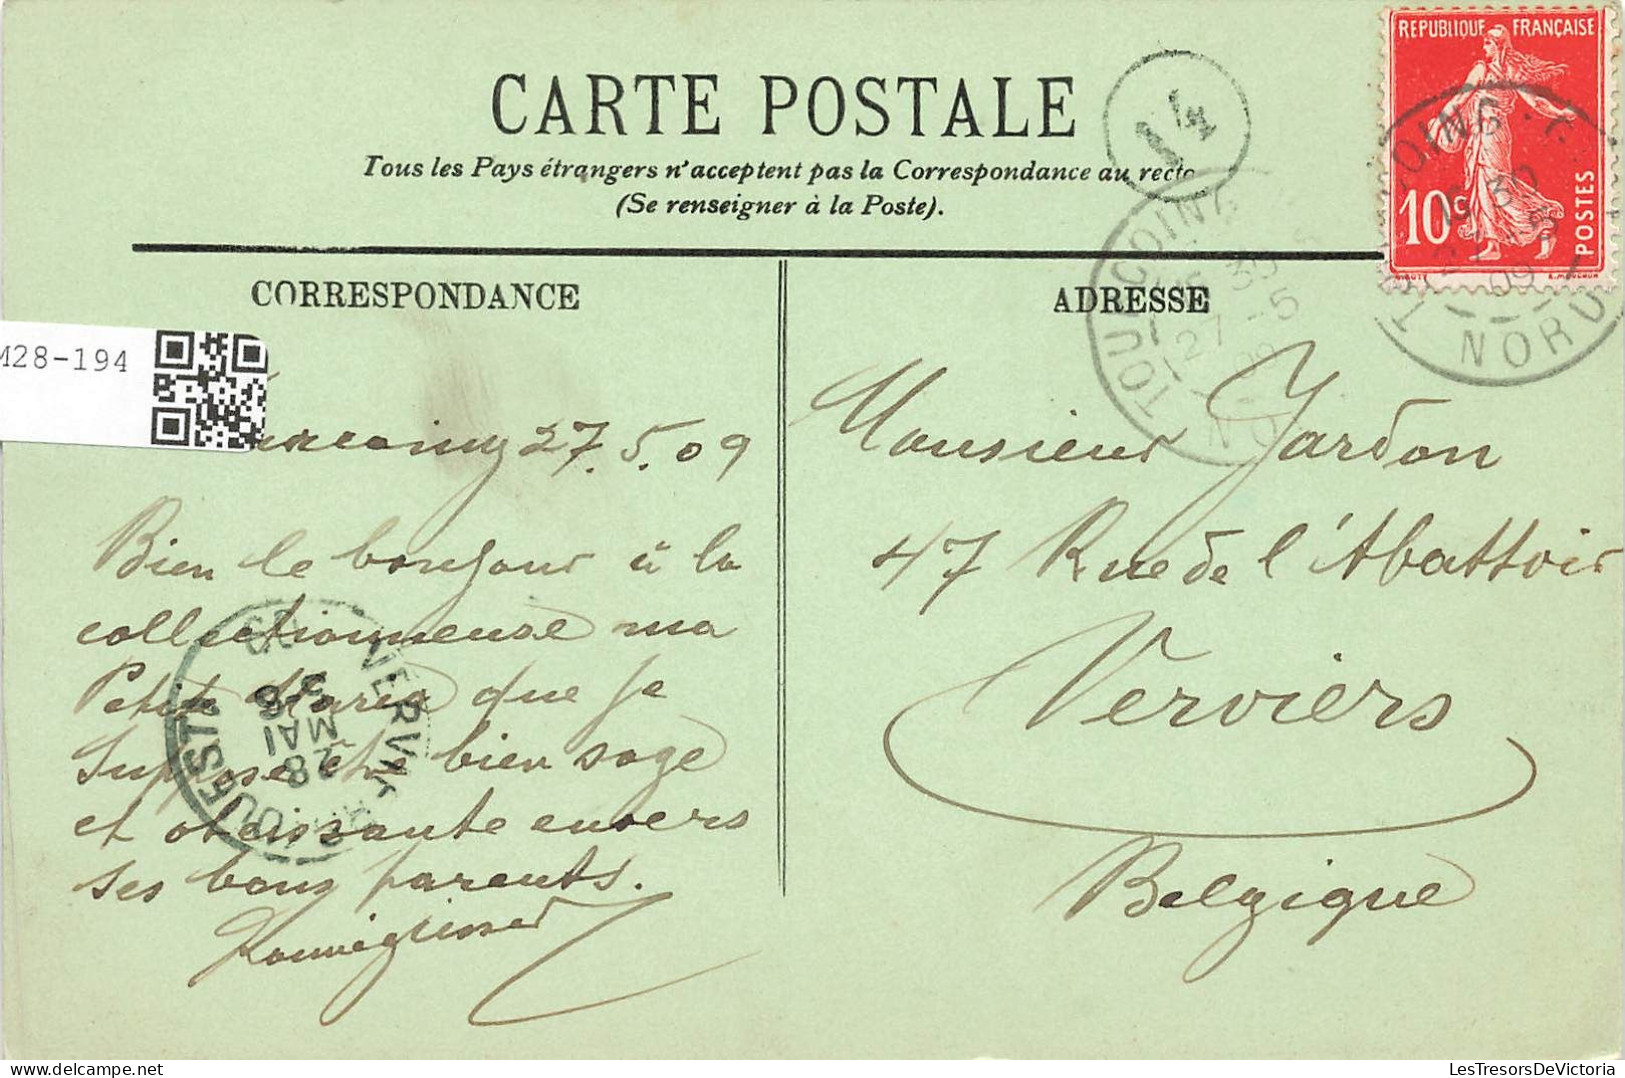 CARTE POSTALE
Tous les Pays étrangers n'acceptent pas la Correspondance au recto
(Se renseigner à la Poste).
14
REPUBLIQUE FRANÇAISE
10c
POSTES
TOURCOING
NORD
TOURCOING
27-5
CORRESPONDANCE
ADRESSE
M28-194
27.5.09
Bien le bonjour à la
collectionneuse ma
Petite Maria que je
suppose être bien sage
et obeissante envers
ses bons parents.
Monsieur Jardon
47 Rue de l'Abattoir
Verviers
Belgique
VERVIERS
OUEST
28
MAI
LesTresorsDeVictoria